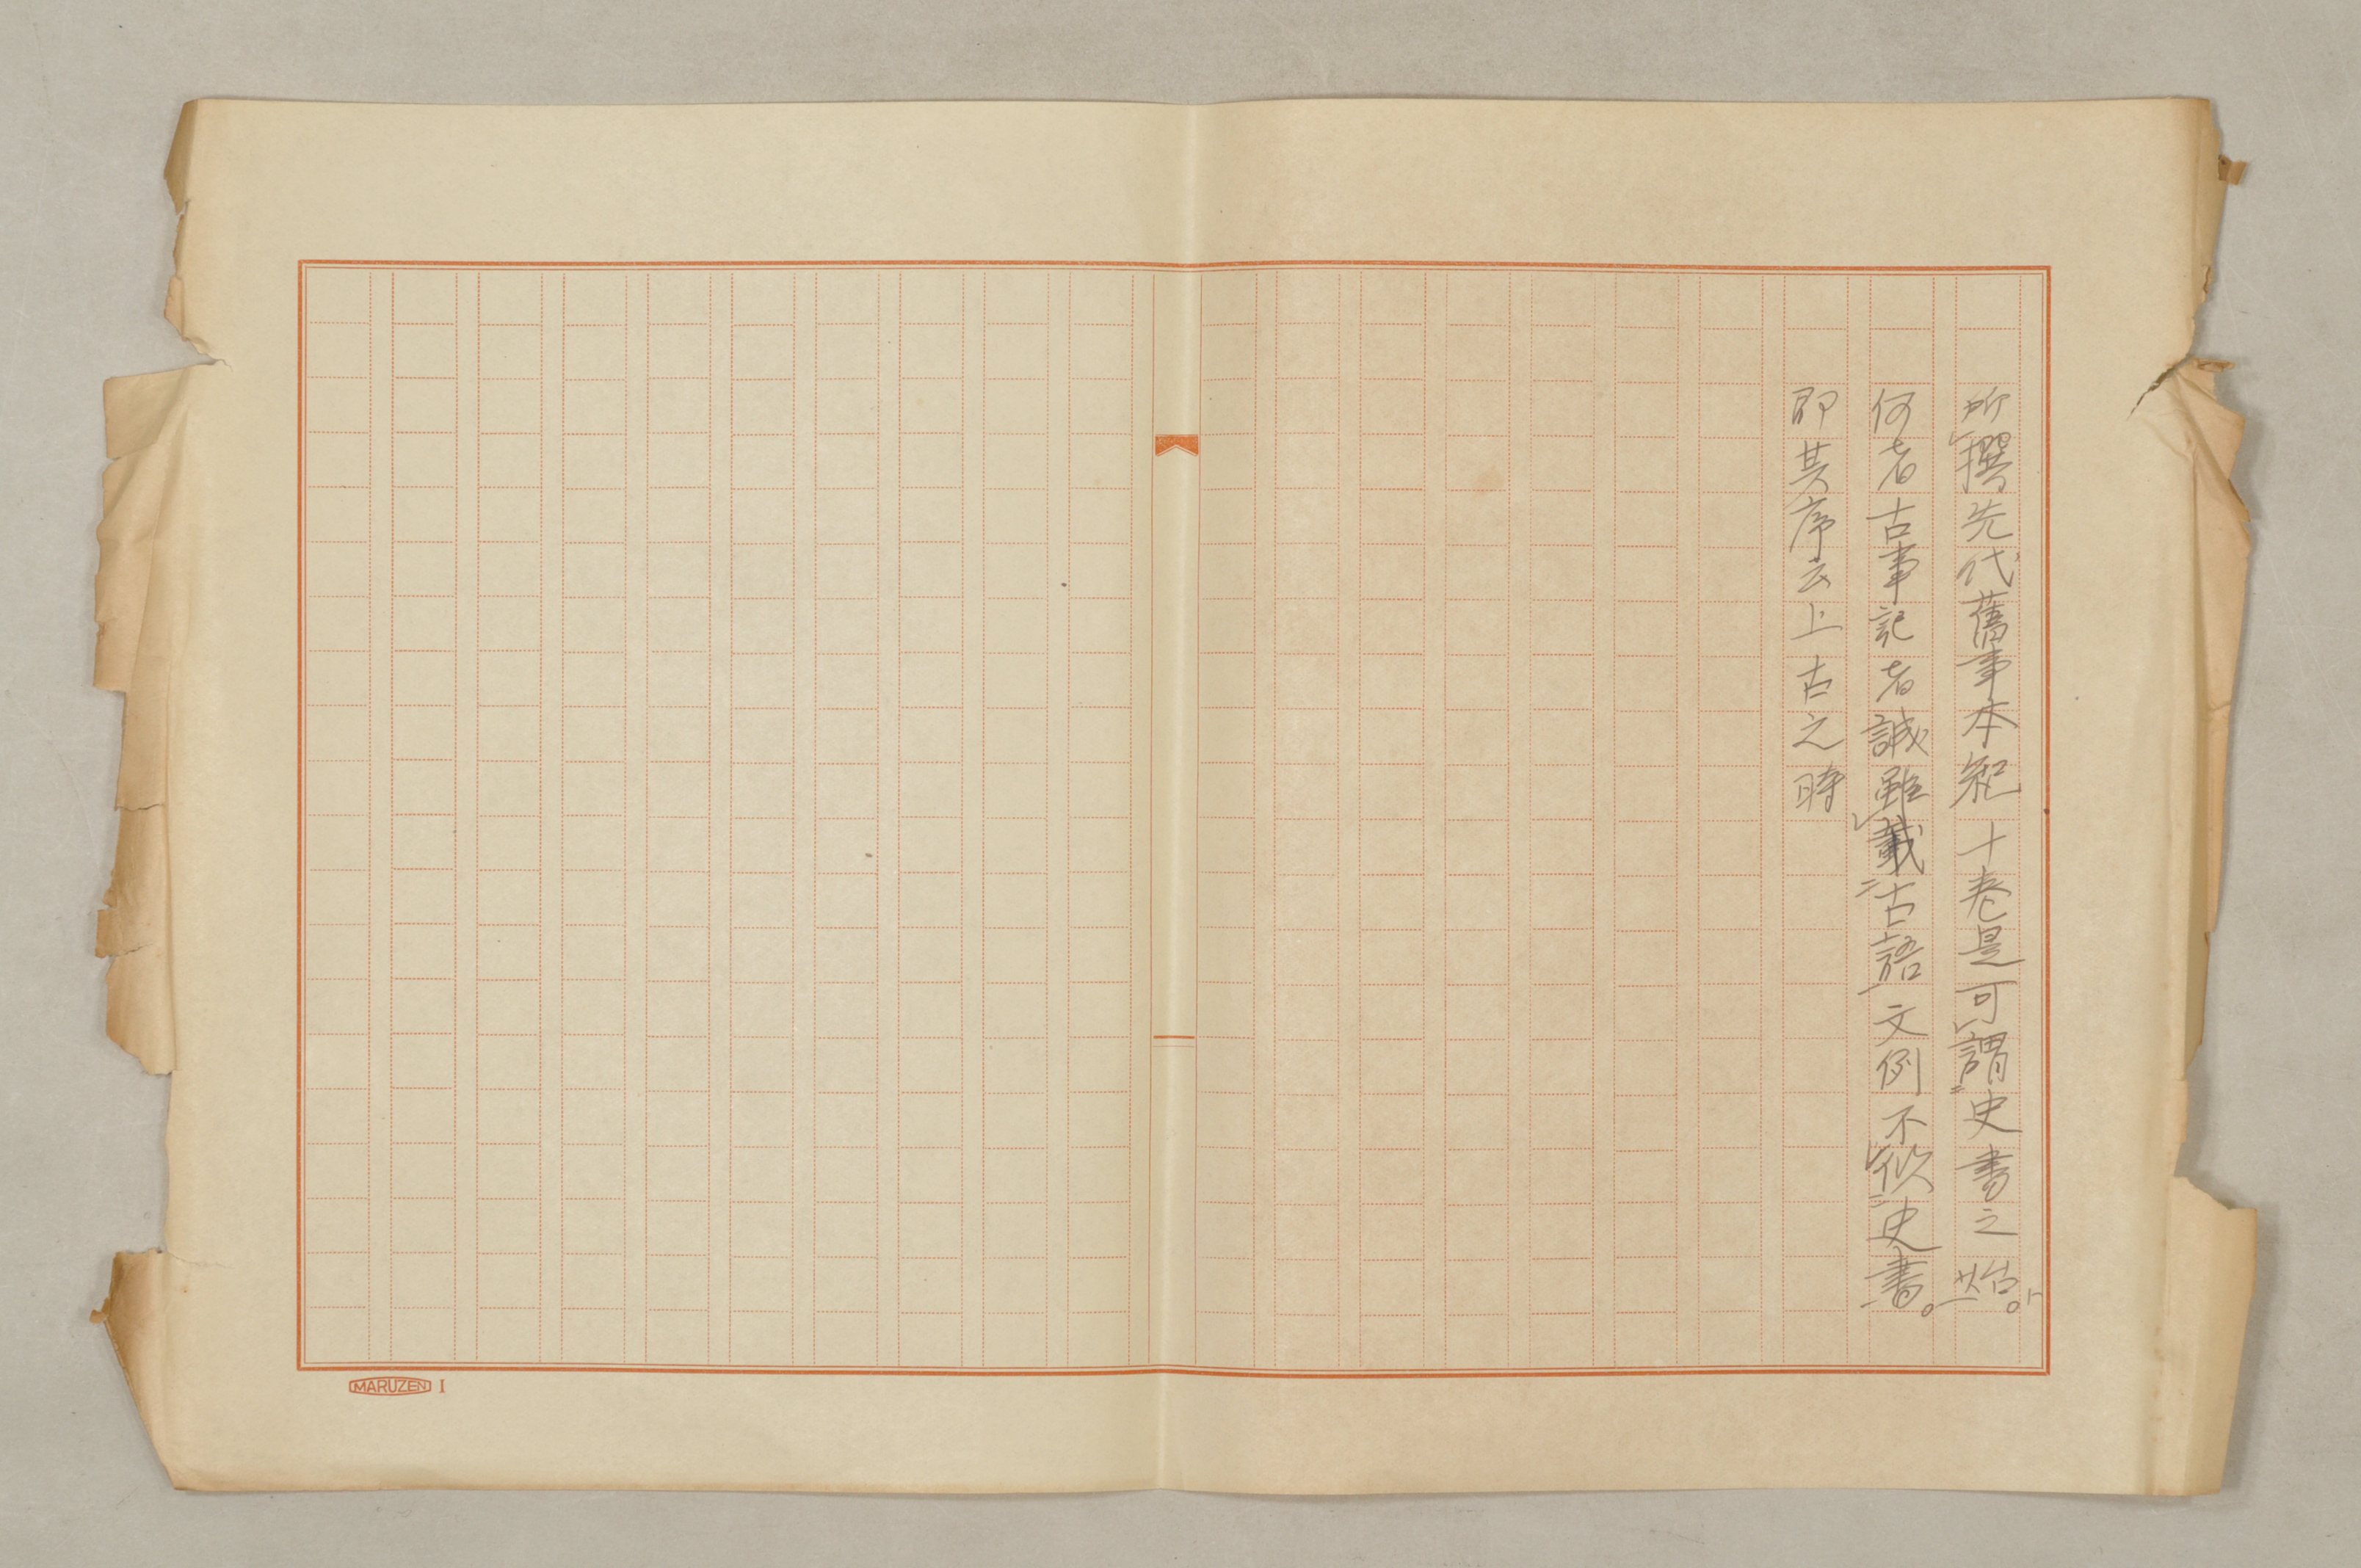 所㆑撰先代舊事本紀十卷是可㆑謂㆓史書之始㆒ト。
何者古事記者誠雖㆑載㆓古語㆒文例不㆑似㆓史書㆒。
即其序云上古之時
MARUZEN I